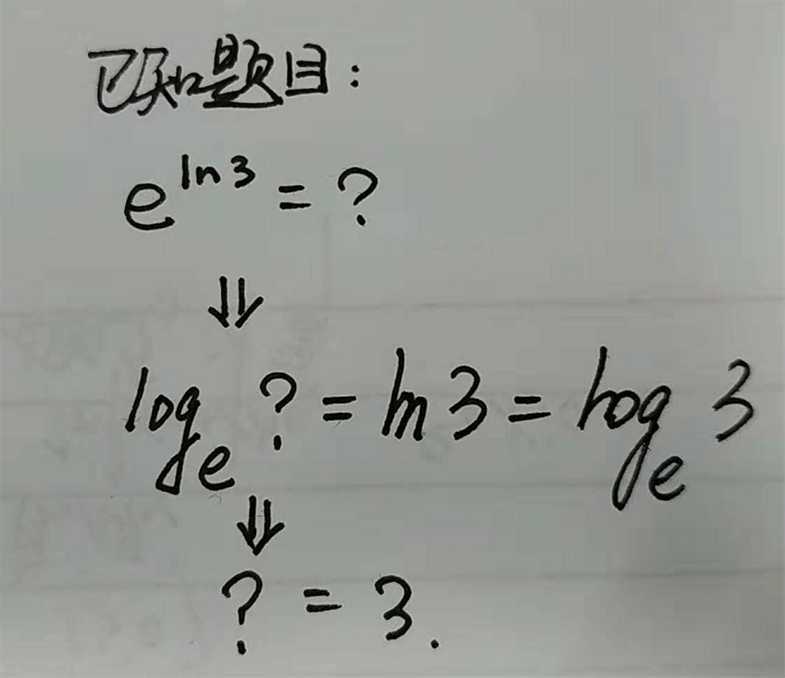 已知题目:
e^ln3 = ?
⇓
log_e ? = ln 3 = log_e 3
⇓
? = 3.